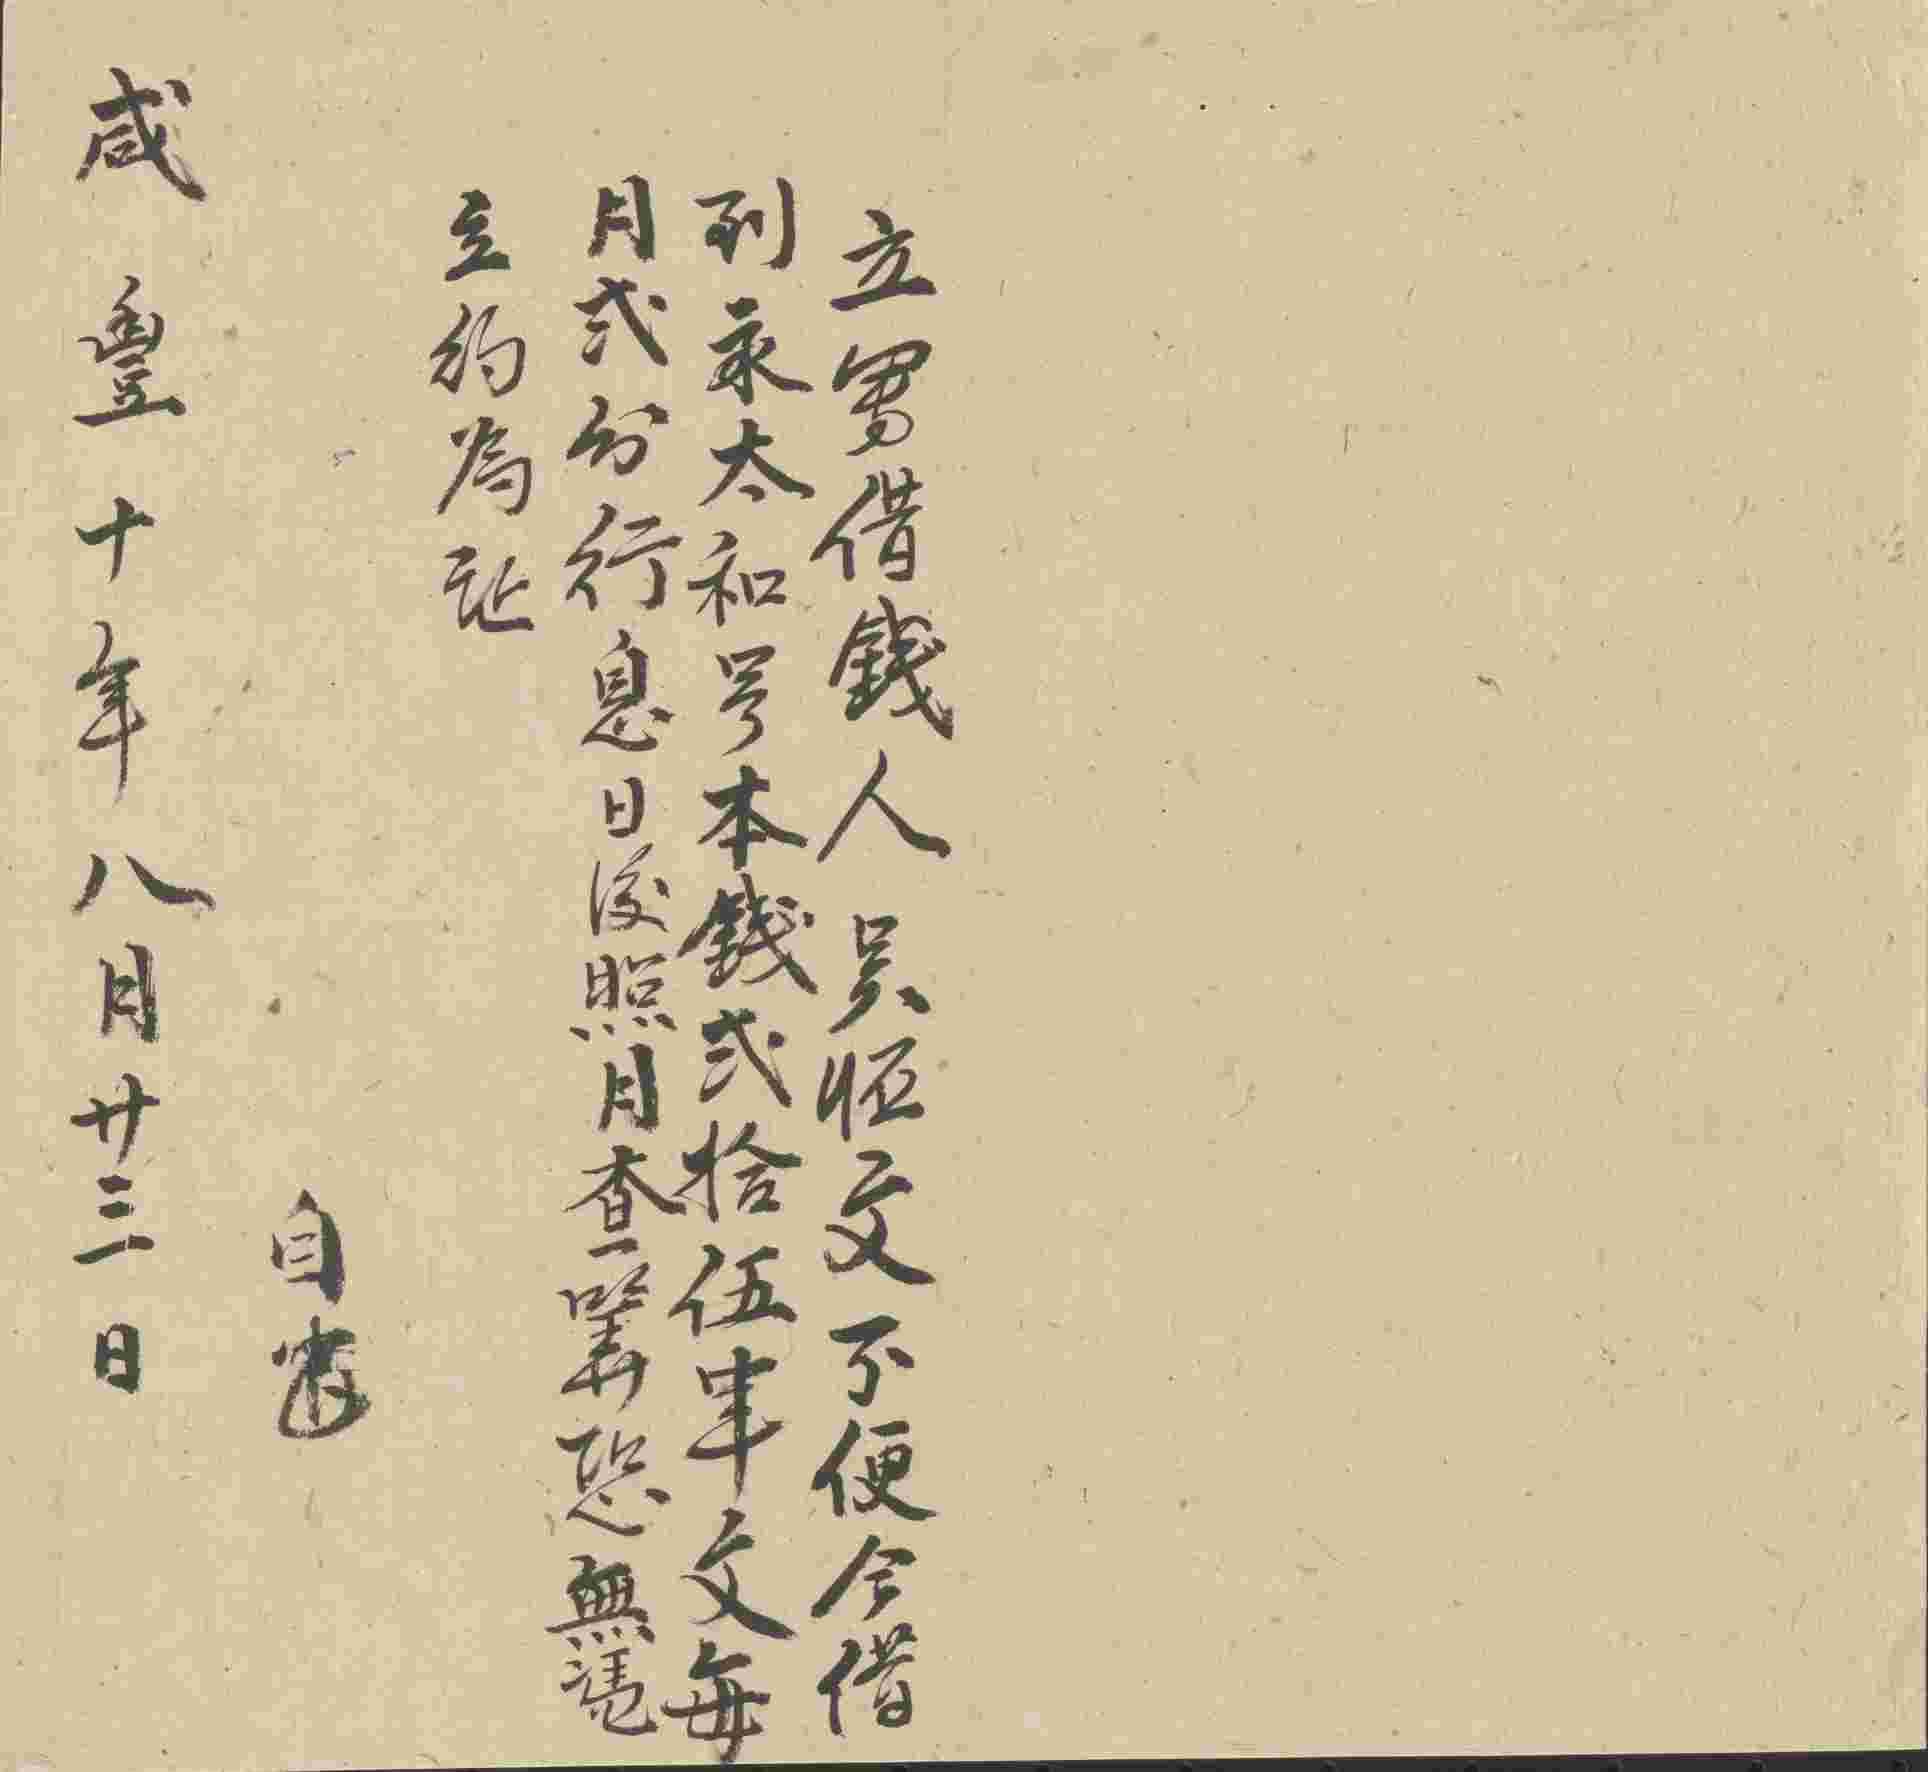 立寫借錢人吳恒文不便今借
到永太和号本錢弍拾伍串文每
月弍分行息日後照月查算恐無憑
立約為証
自
咸豐十年八月廿三日